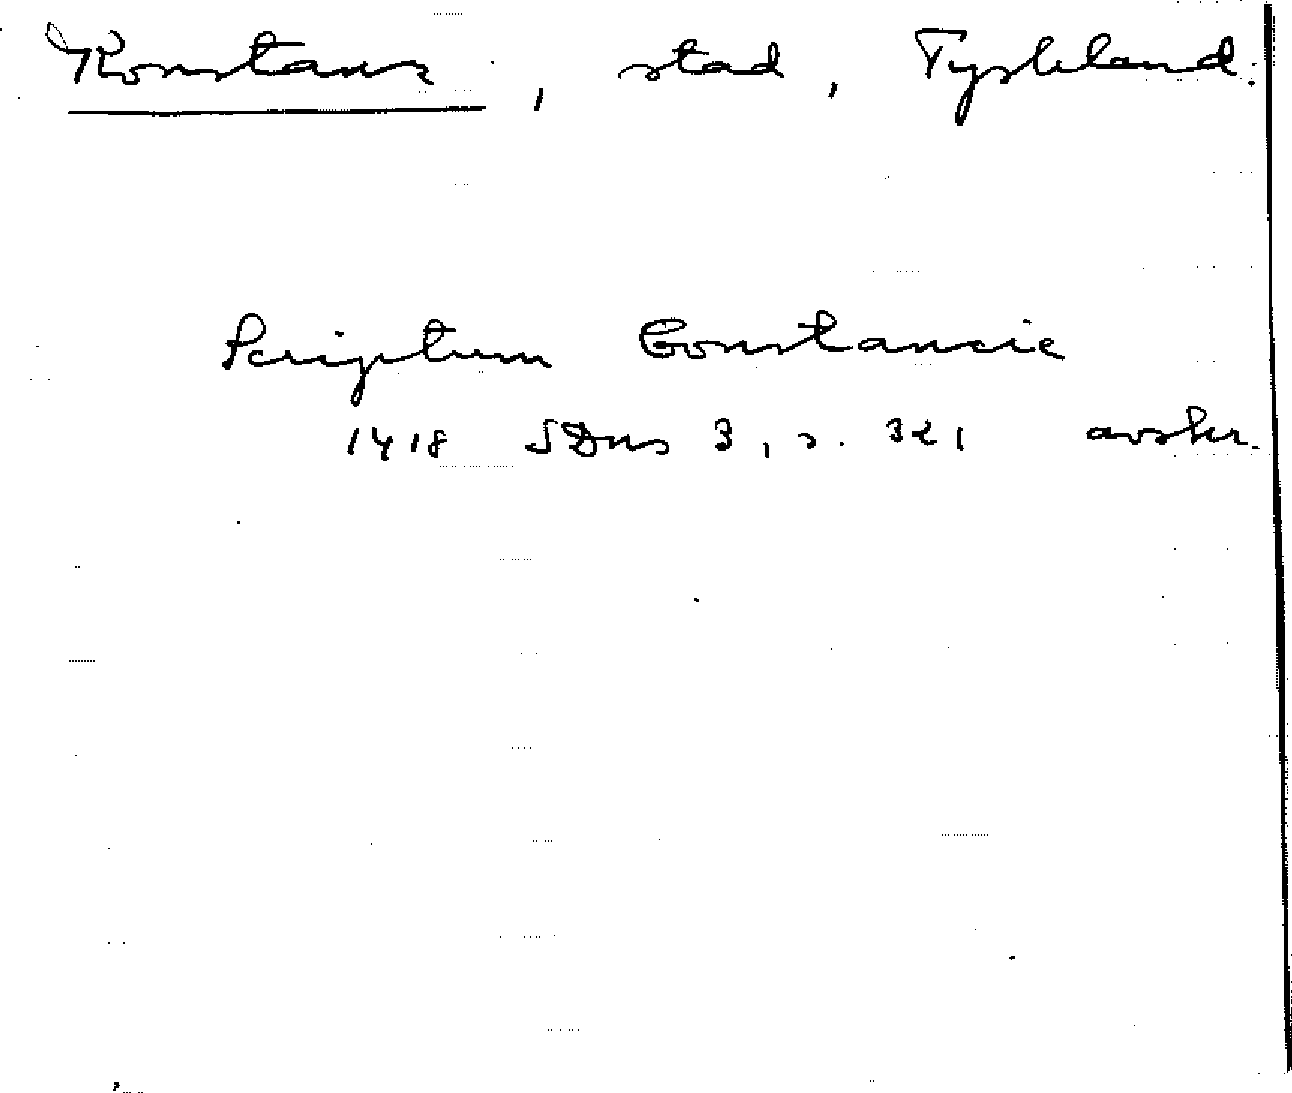 Konstanz, stad, Tyskland.
Scriptum Constancie
1418 SDns 3, s. 321 avskr.